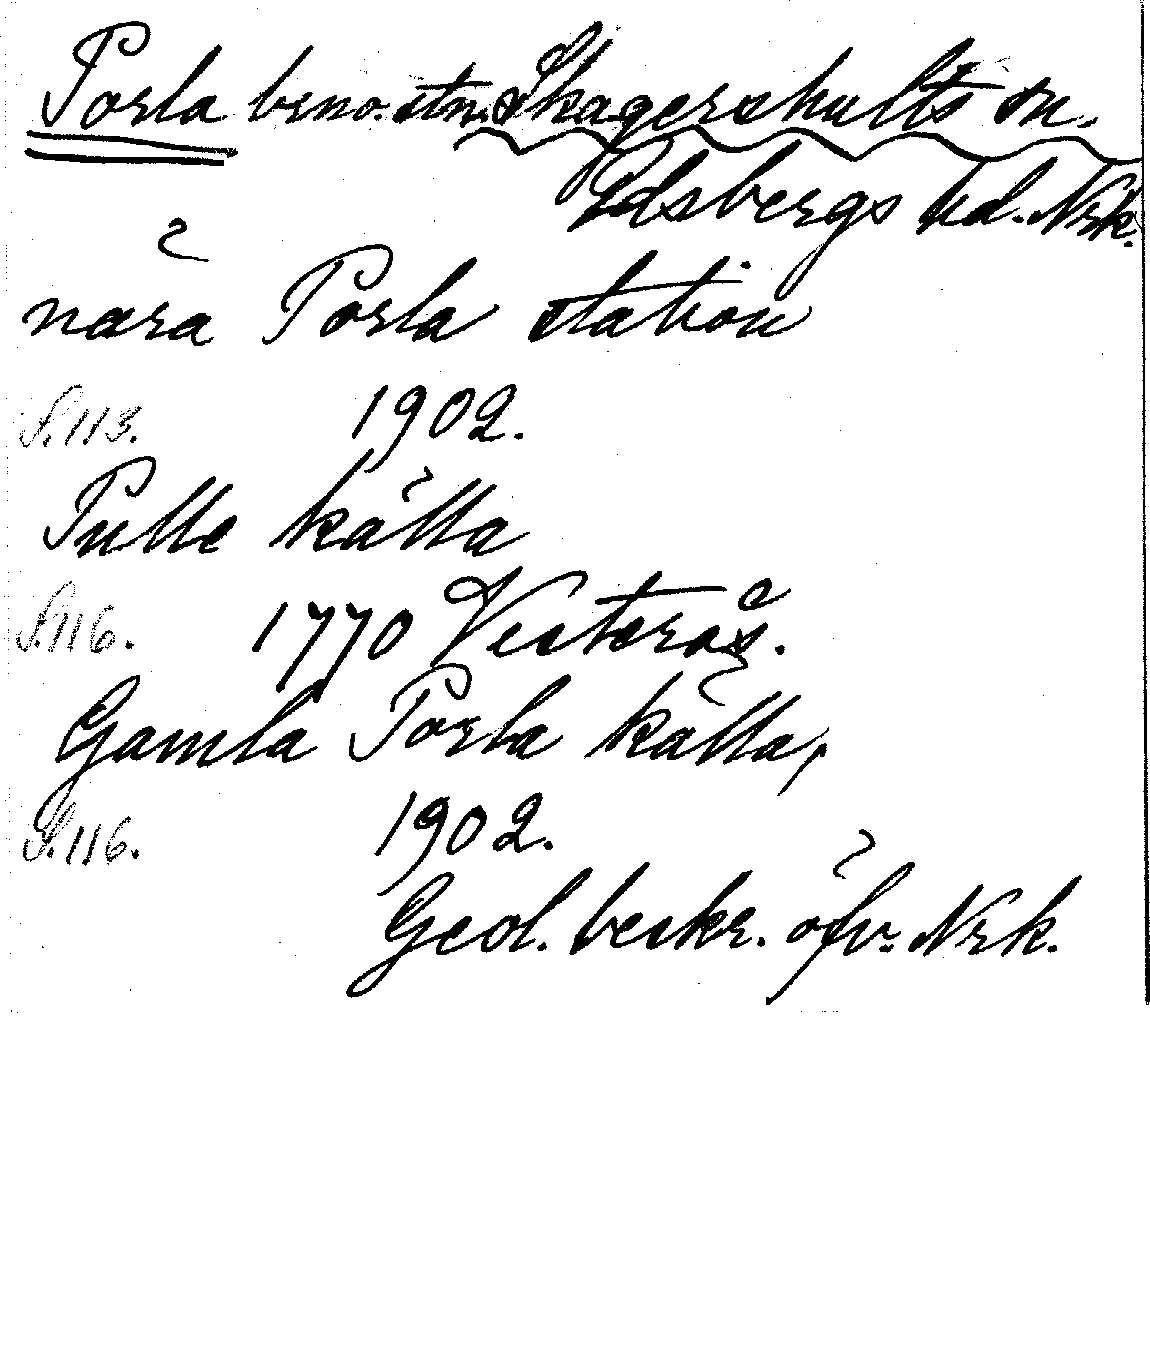 Porla brno. stn. Skagershults sn.
Edsbergs hd. Nrk.
nära Porla station
S. 113. 1902.
Pulle källa
S. 116. 1770 Vesterås.
Gamla Porla källa,
S. 116. 1902.
Geol. beskr. öfv. Nrk.